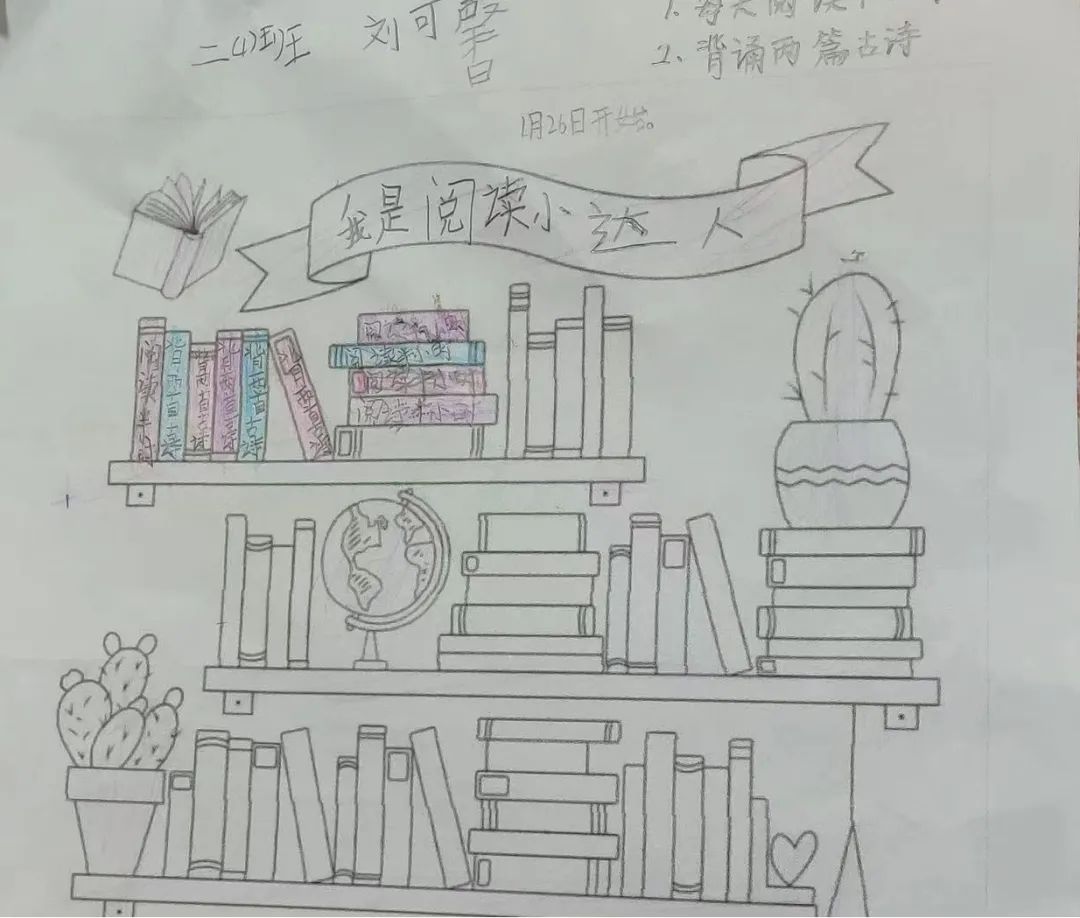 二(1)班 刘可馨
1.每天阅读半小时
2、背诵两篇古诗
1月26日开始。
我是阅读小达人
阅读半小时
背两首古诗
背两首古诗
背两首古诗
背两首古诗
背两首古诗
阅读半小时
阅读半小时
阅读半小时
阅读半小时